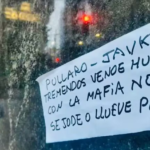 PULLARO - JAVK
TREMENDOS VENGO HU
CON LA MAFIA NO
SE JODE O LLUEVE P